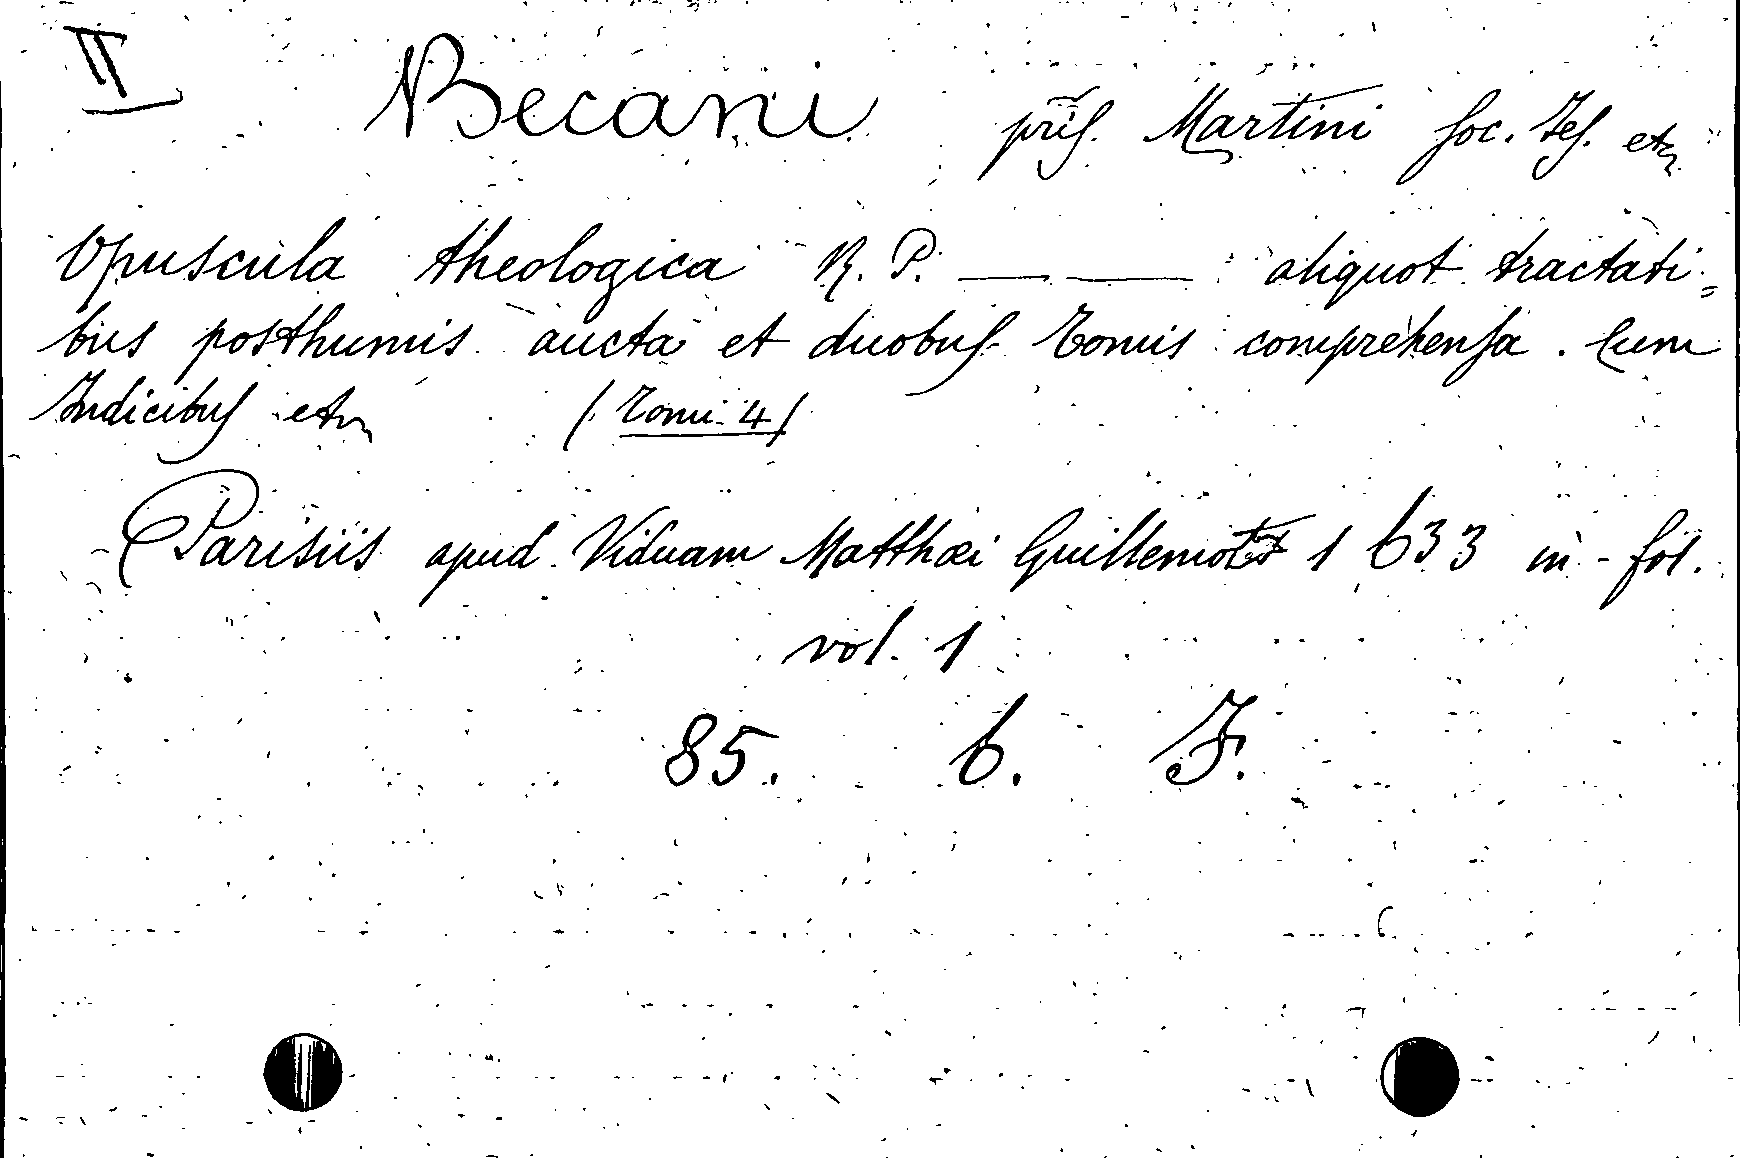 II Becani prſ. Martini ſoc. Jeſ. etc
Opuscula theologica R. P. — — aliquot tractati=
bus posthumis aucta et duobuſ Tomis comprehenſa. Cum
Indicibuſ etc (Tomi 4)
Parisiis apud Viduam Matthæi Guillemot 1633 in-fol.
vol. 1
85. b. F.